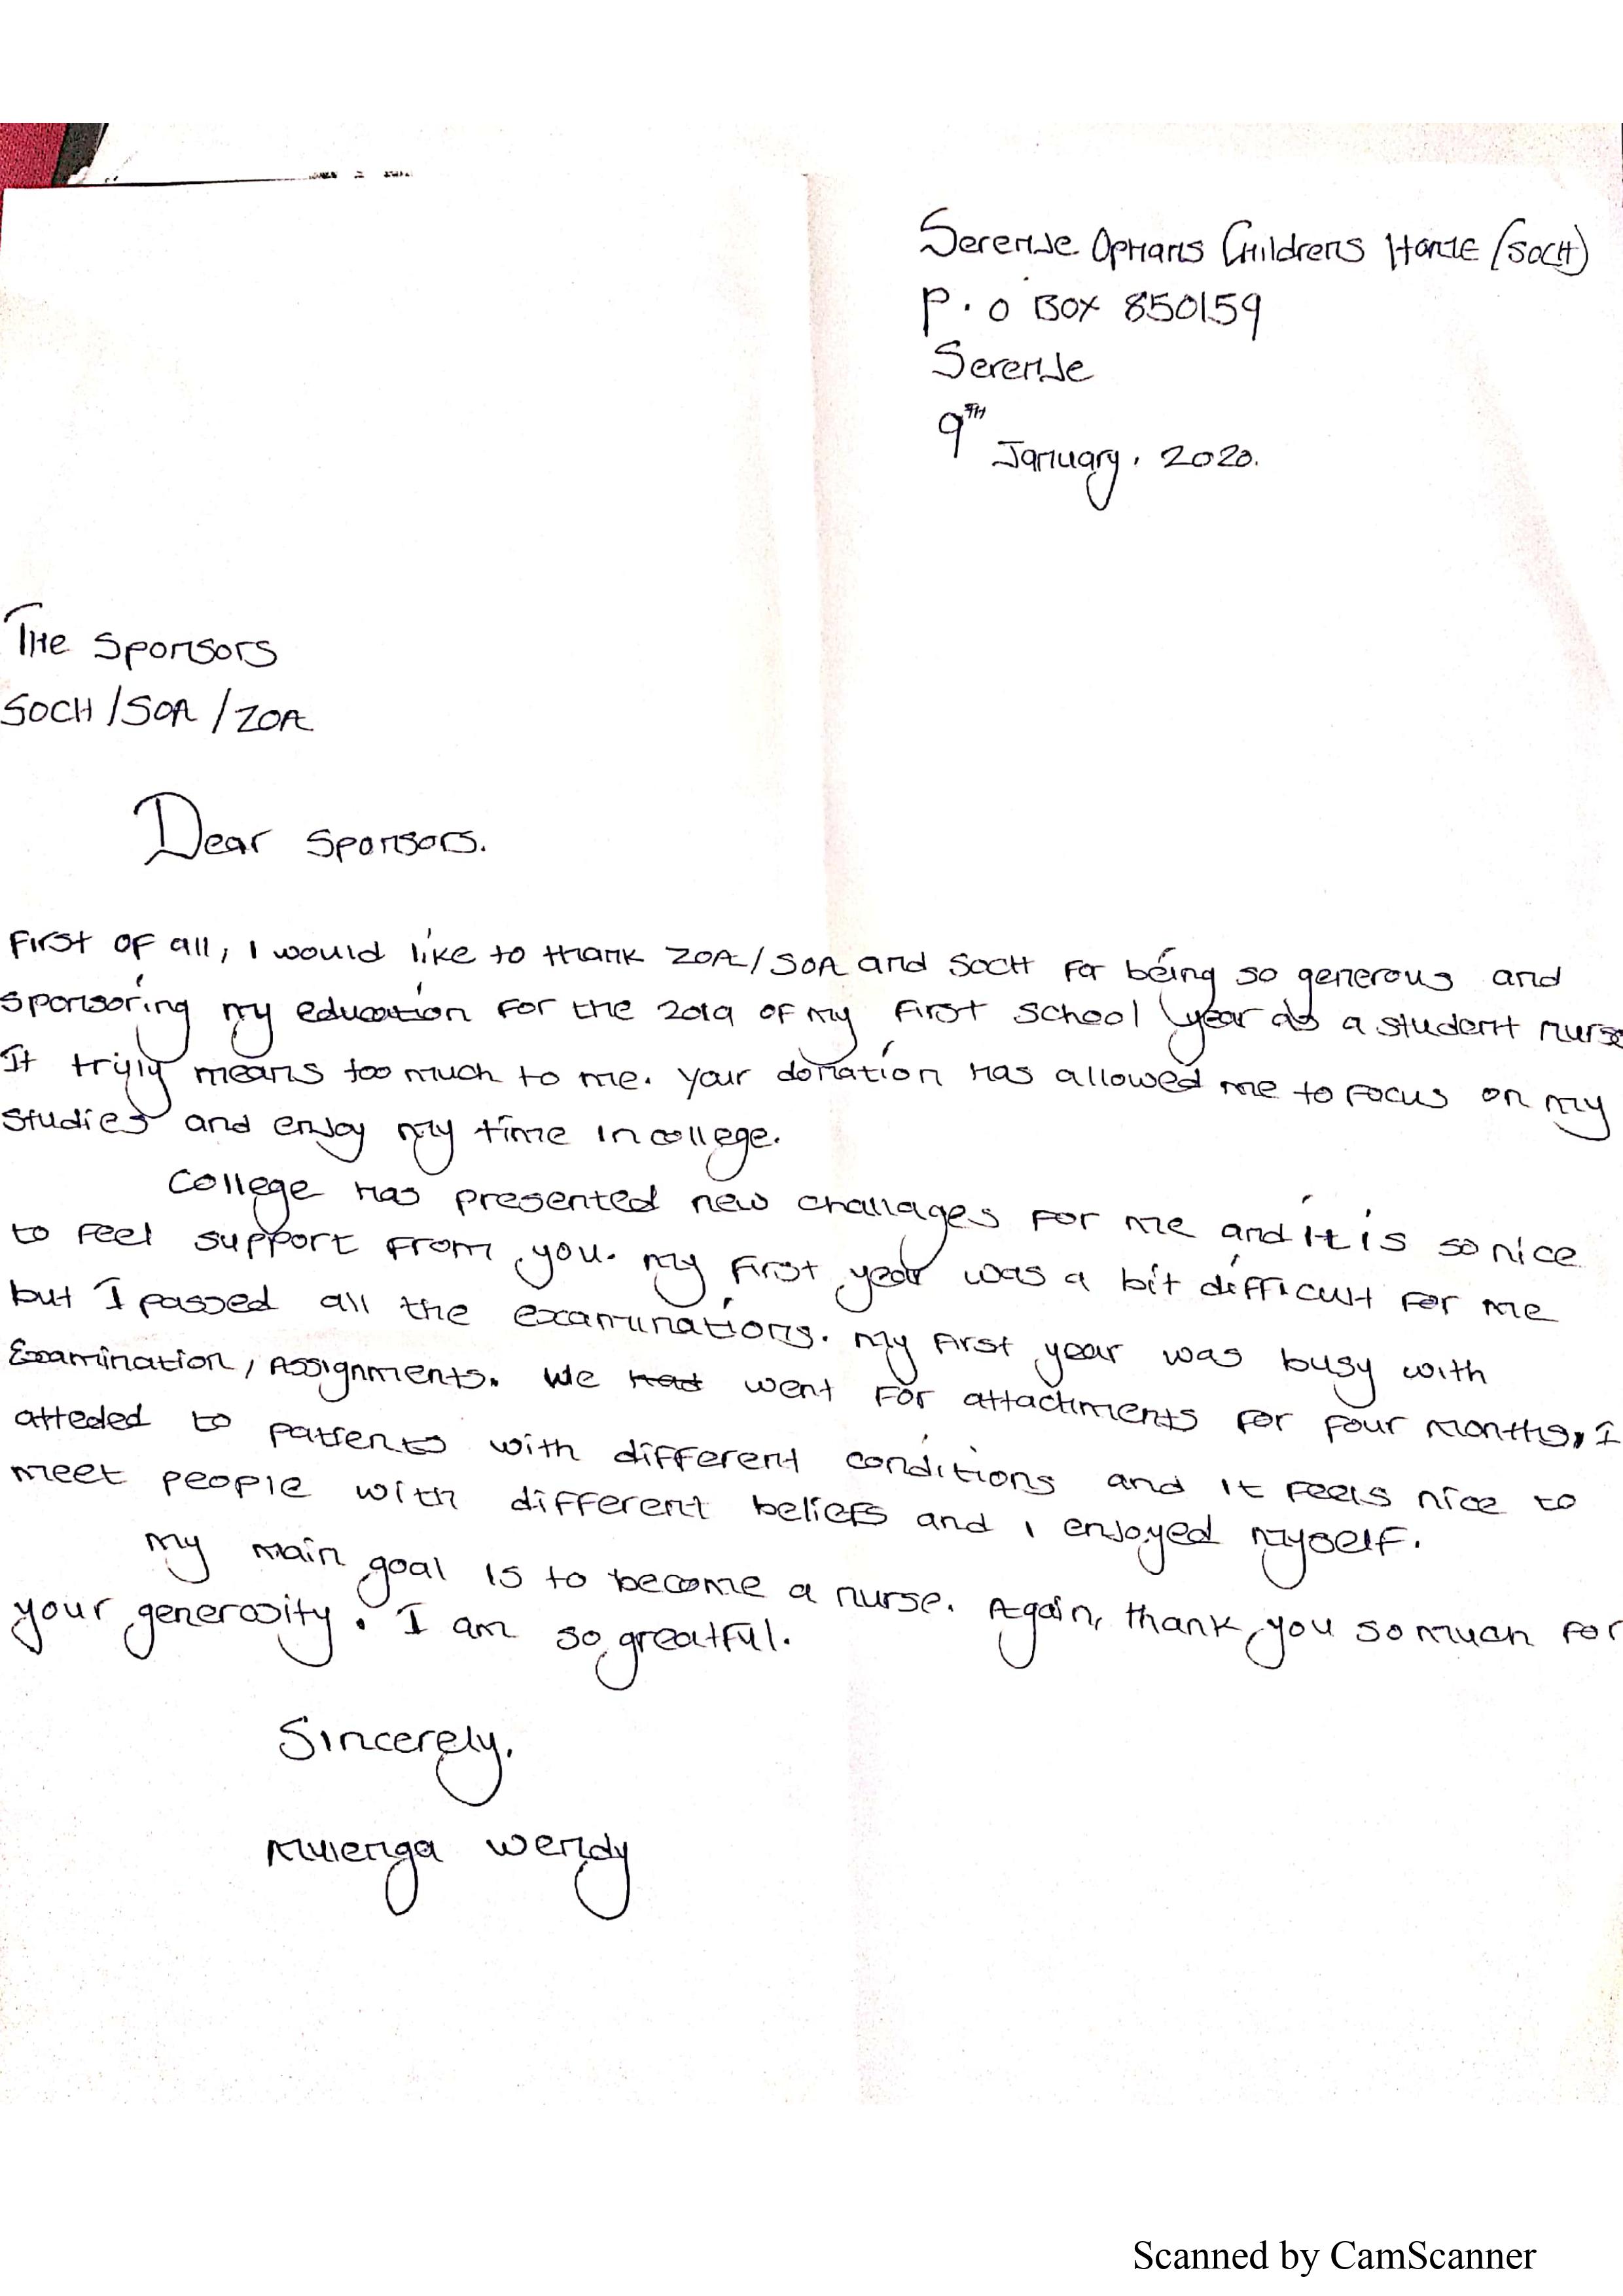 Serenje Ophans Childrens Home (SOCH)
P.O Box 850159
Serenje
9TH January, 2020.
The Sponsors
SOCH/SOA/ZOA
Dear Sponsors.
First of all, I would like to thank ZOA/SOA and SOCH for being so generous and
sponsoring my education for the 2019 of my first school year as a student nurse
It tryly means too much to me. Your donation has allowed me to focus on my
studies and enjoy my time in college.
College has presented new challages for me and it is so nice
to feel support from you. My first year was a bit difficult for me
but I passed all the examinations. My first year was busy with
Examination, Assignments. We had went for attachments for four months, I
atteded to patients with different conditions and it feels nice to
meet people with different beliefs and I enjoyed myself.
My main goal is to become a nurse. Again, thank you so much for
your generosity. I am so greatful.
Sincerely,
Mulenga Wendy
Scanned by CamScanner